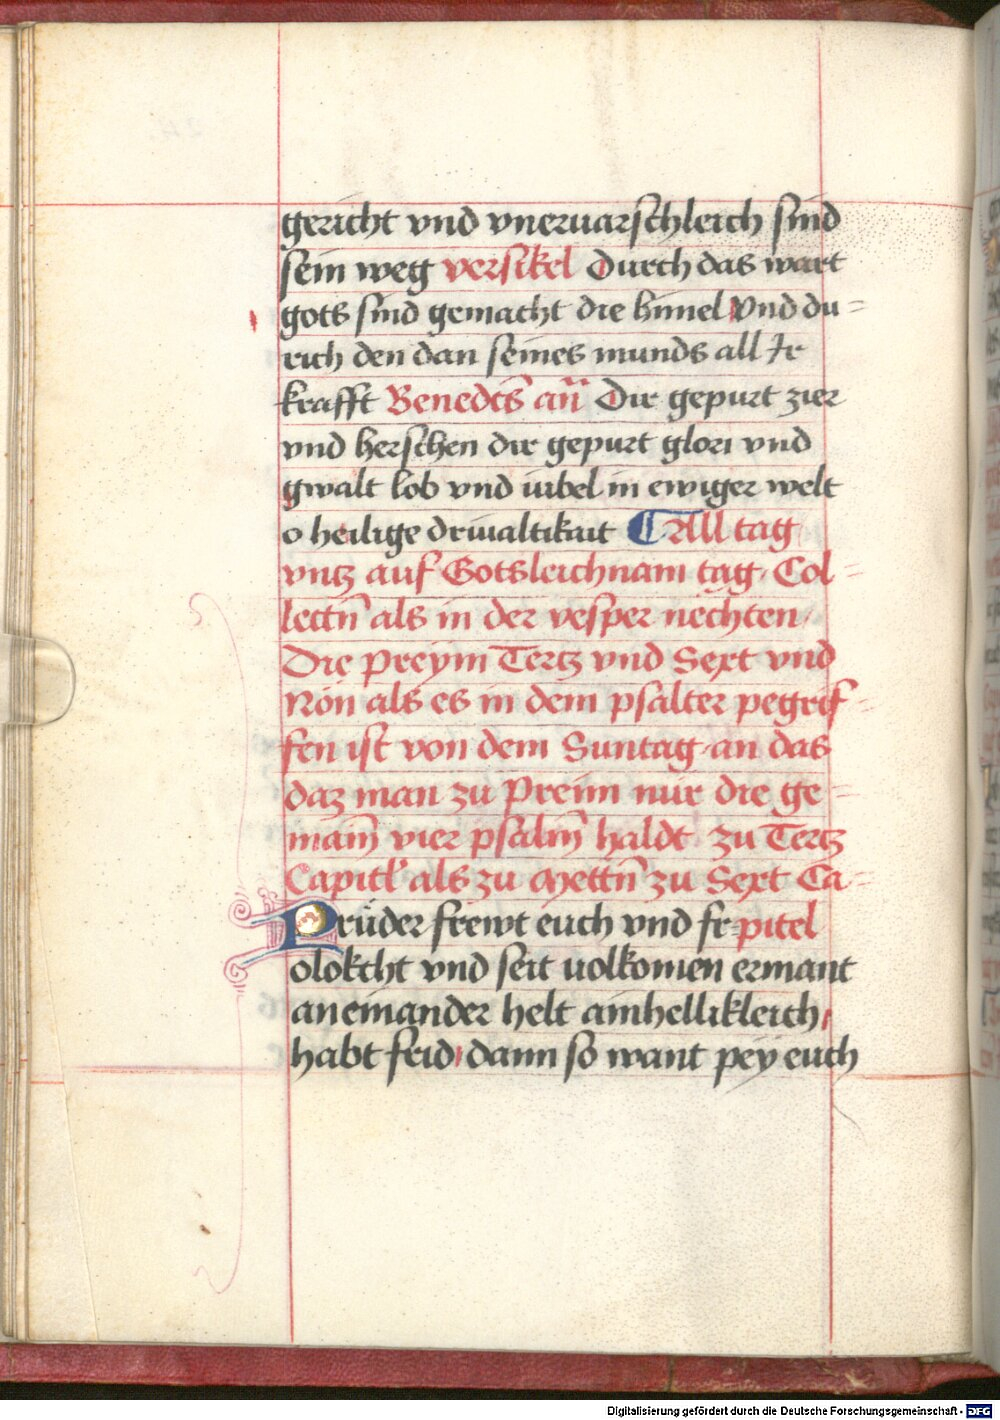 gericht vnd vneruarschleich sind
sein weg versikel Durch das wart
gots sind gemacht die himel Vnd du-
rich den dan seines munds all Ir
krafft Benedcs̄ an̄ Dir gepurt zier
vnd herschen dir gepurt glori vnd
gwalt lob vnd iubel in ewiger welt
o heilige driualtikait All tag
vntz auf Gotsleichnam tag Col-
lectn̄ als in der vesper nechten
Die Preym Tertz vnd Sext vnd
Non als es in dem psalter pegrif-
fen ist von dem Suntag an das
daz man zu Preim nur die ge-
main̄ vier psalm̄ haldt zu Tertz
Capitl als zu Mettn̄ zu Sext Ca-
Prüder frewt euch vnd fr-pitel
olokcht vnd seit uolkomen ermant
an einander helt ainhellikleich
habt frid dann so want pey euch
Digitalisierung gefördert durch die Deutsche Forschungsgemeinschaft - DFG